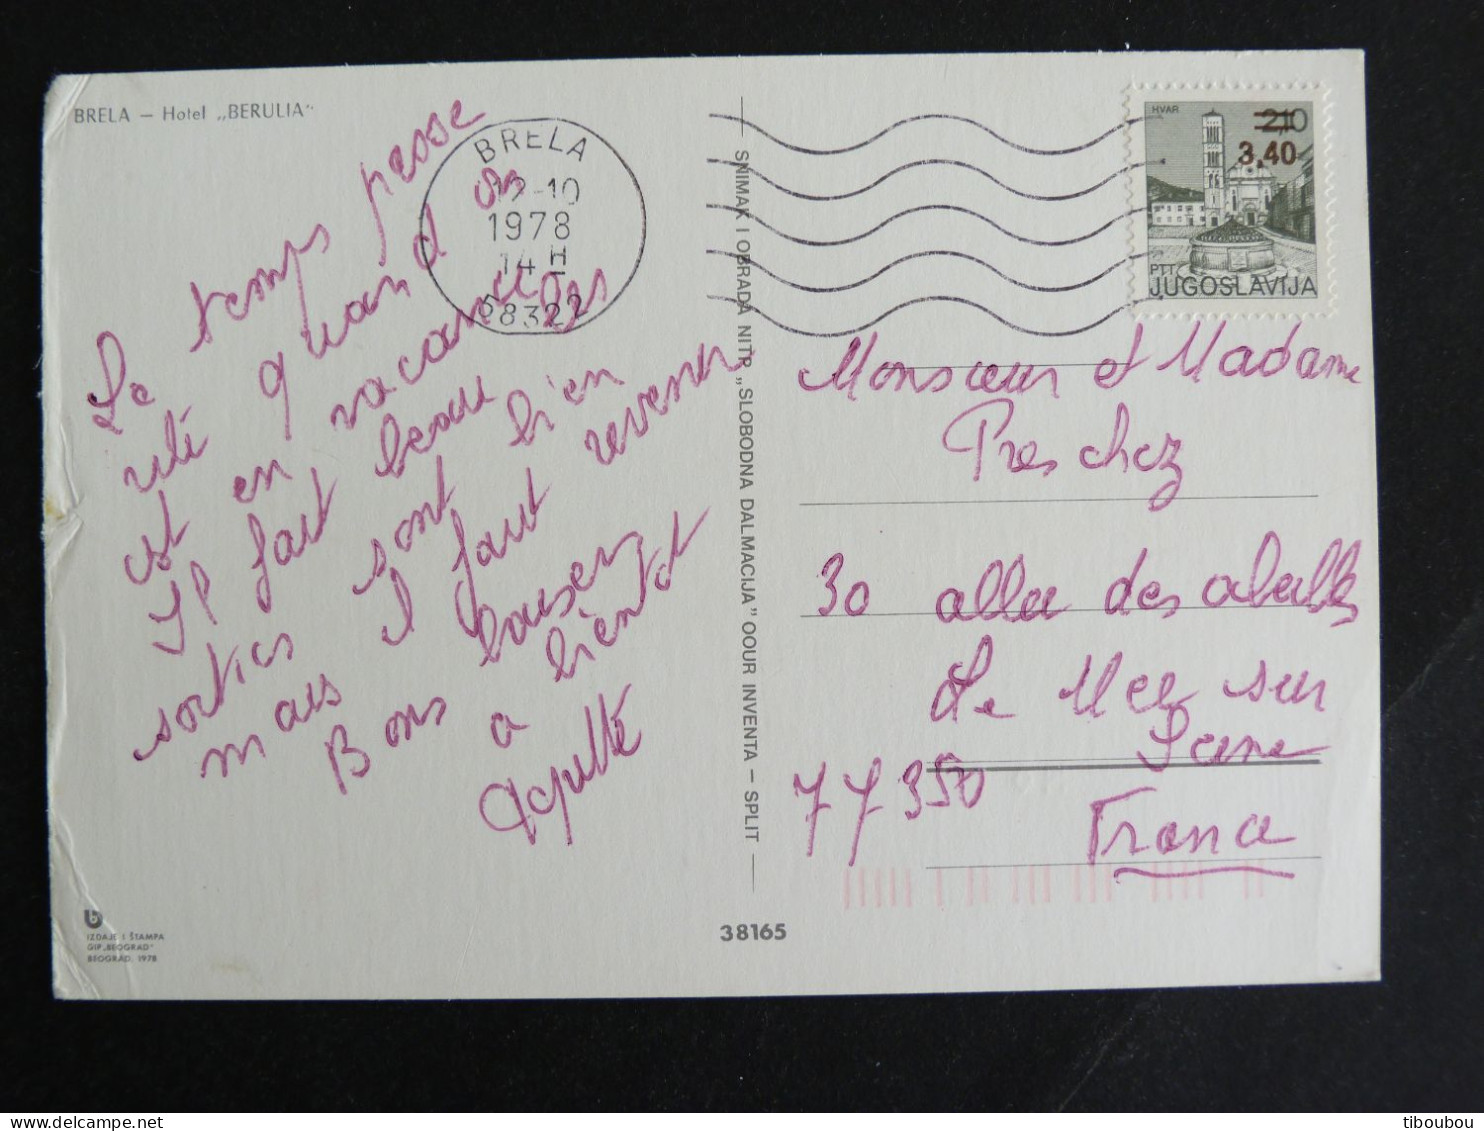 BRELA – Hotel „BERULIA“
Le temps passe
vité quand on
est en vacances
Il fait beau les
sorties sont bien
mais il faut revenir
Bons baisers
a bièntot
BRELA
12-10
1978
14 H
58322
HVAR
2,10
3,40
PTT
JUGOSLAVIJA
SNIMAK I OBRADA NITP „SLOBODNA DALMACIJA” OOUR INVENTA – SPLIT
Monsieur et Madame
Preschez
30 allee des abeilles
Le Mee sur
Seine
77350
France
38165
IZDAJE I ŠTAMPA
GIP „BEOGRAD”
BEOGRAD, 1978
tiboubou